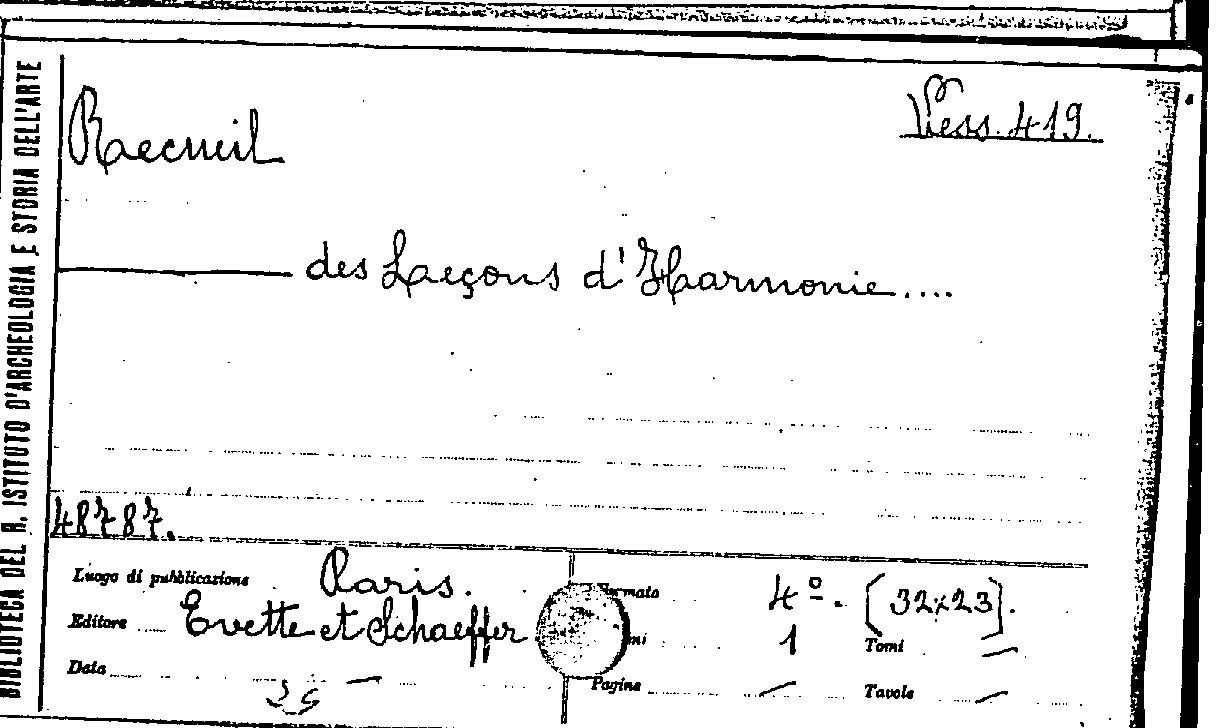 BIBLIOTECA DEL R. ISTITUTO D'ARCHEOLOGIA E STORIA DELL'ARTE
Recueil
Vess. 419.
des Leçons d'Harmonie....
48787.
Luogo di pubblicazione Paris.
4º. [32x23].
Editore Evette et Schaeffer
1 Tomi —
Data —
Pagine — Tavole —